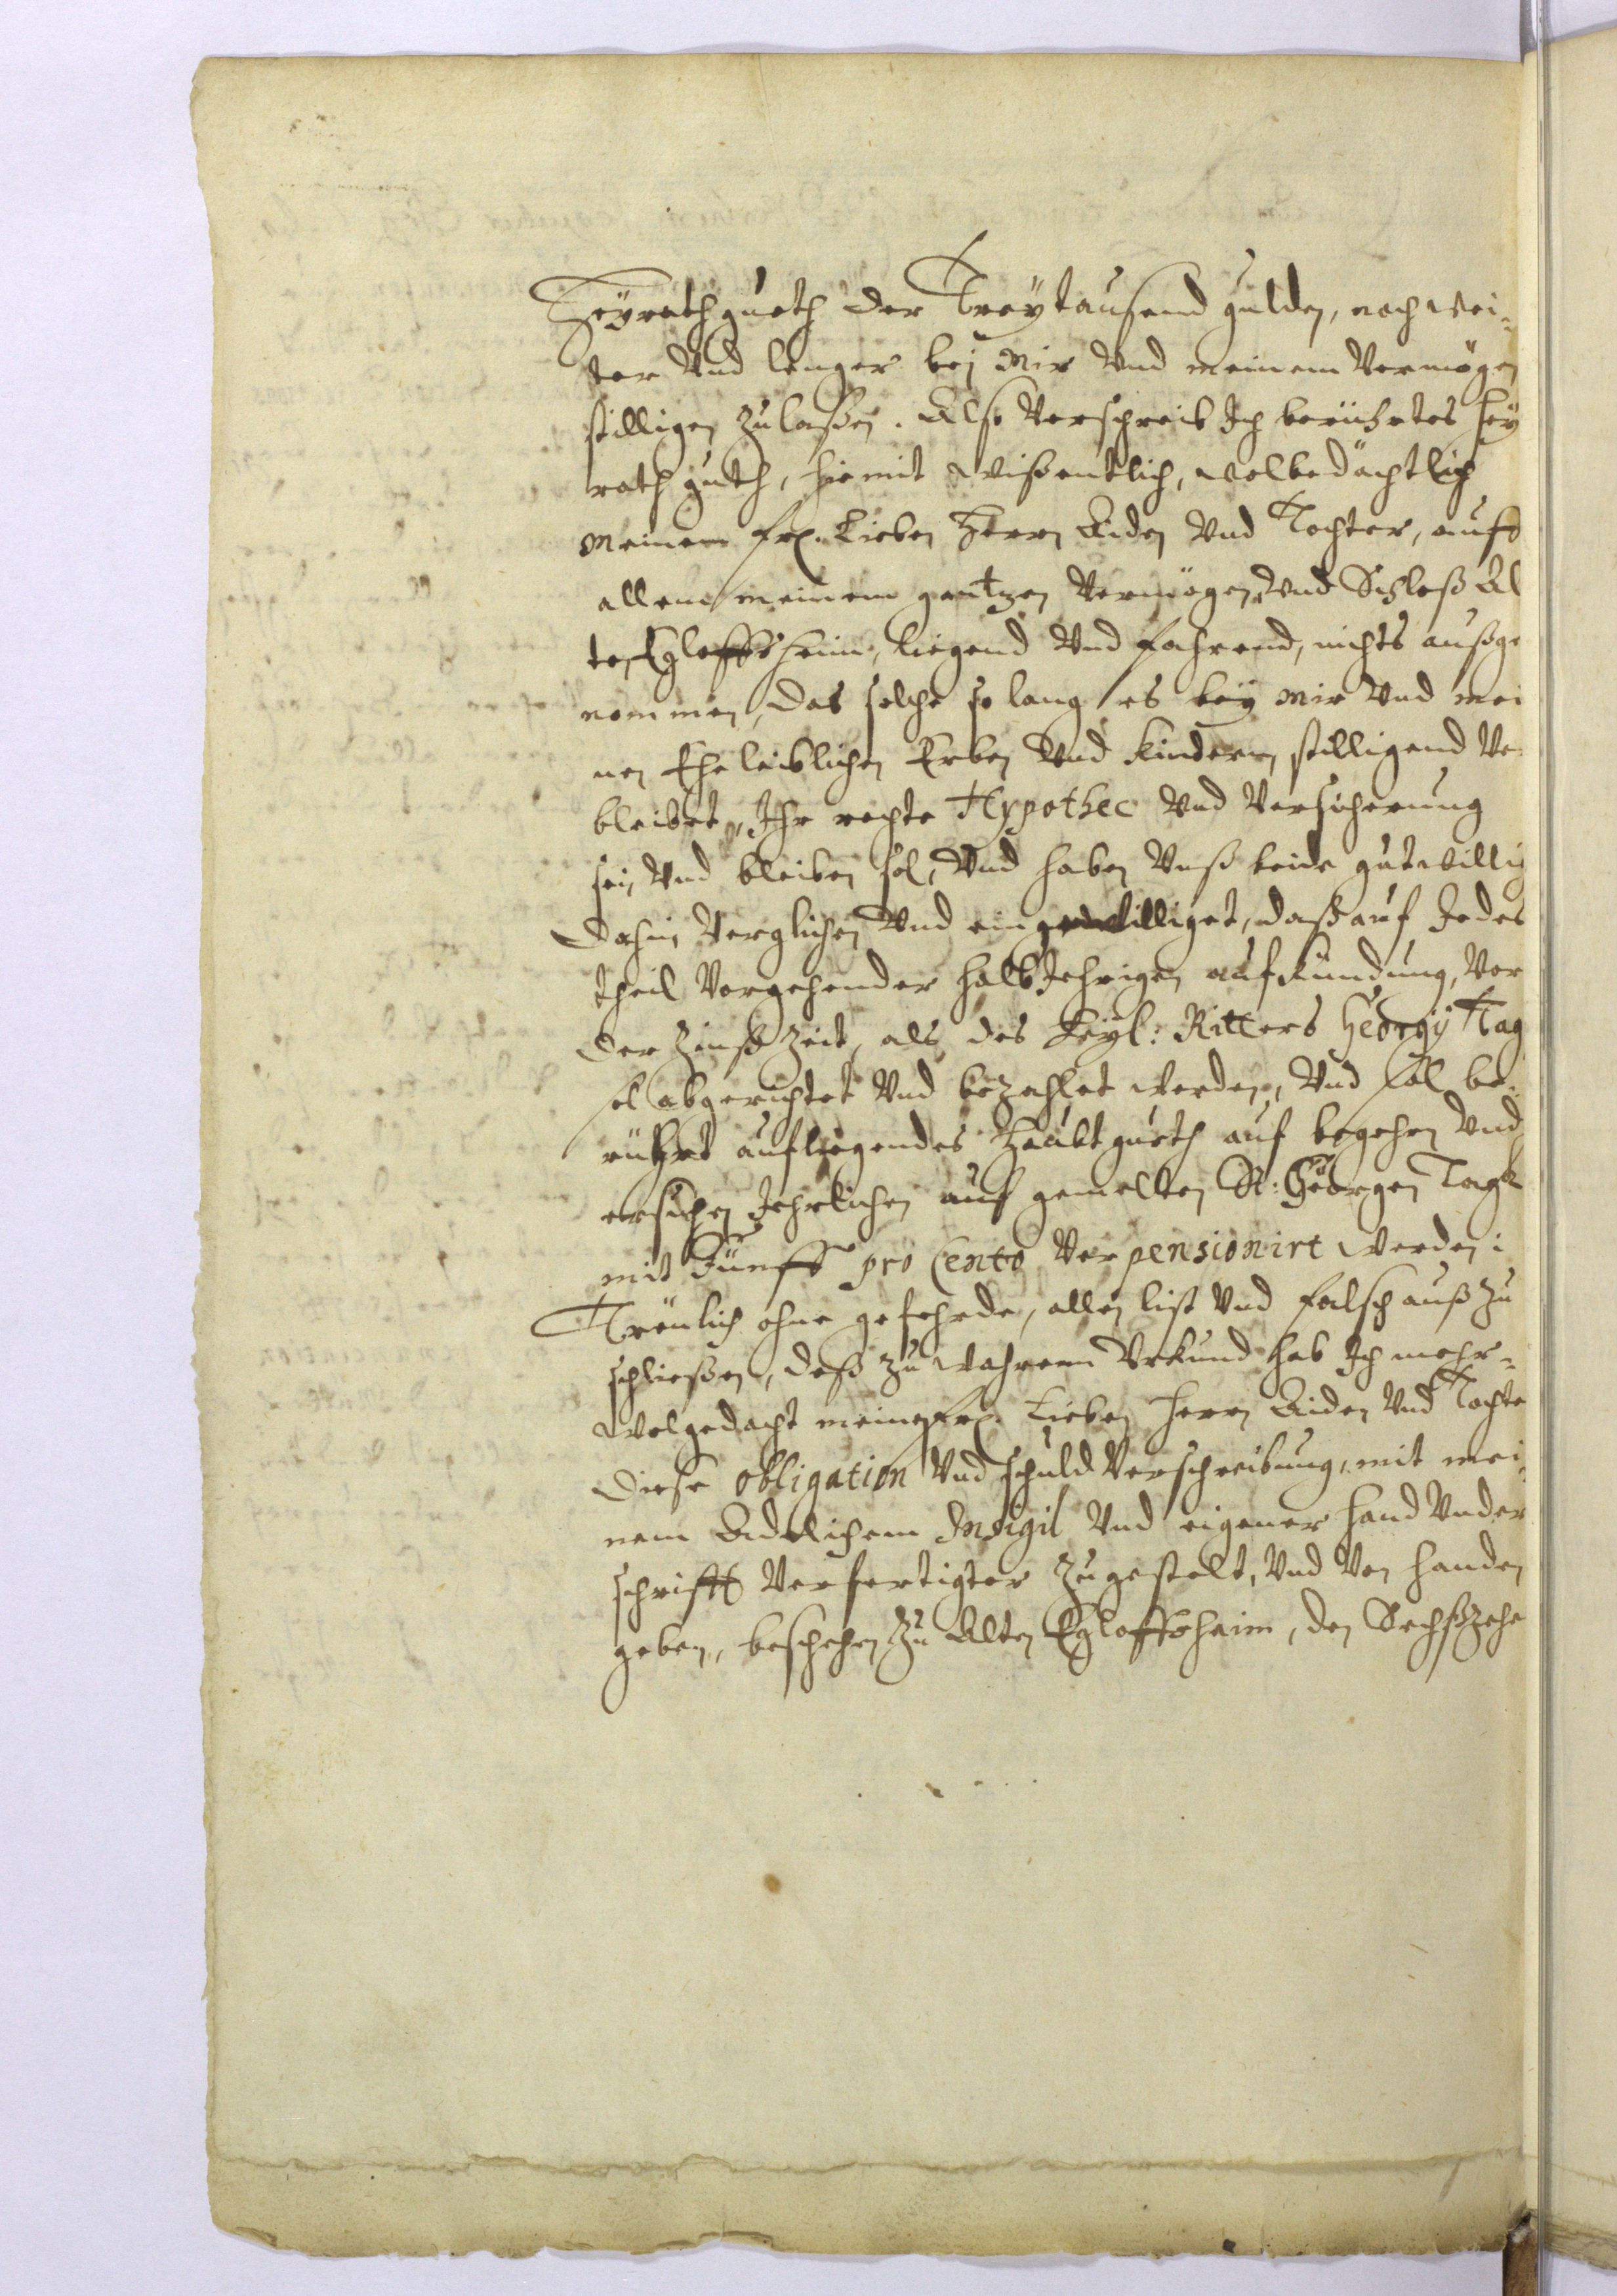 Heyrathgueth der Dreytausend gulden, noch wei-
ter Vnd lenger bej Mir Vnd meinem Vermögen
stilligen zulaßen. Also Verschreib Ich berührtes Hey
rath guth, hiemit wißentlich, wolbedächtlich
Meinem frl. Lieben Herrn Aiden Vnd Tochter, auf
allem meinem gantzen Vermögen Vnd Schloß Al
ten Egloffsheim, liegend Vnd fahrend, nichts außge
nommen, das solche so lang es bey Mir Vnd mei
nen Eheleiblichen Erben Vnd Kindern stilligend Ver
bleibet, Ihr rechte Hypothec Vnd Versicherung
sei, Vnd bleiben sol, Vnd haben Vnß beide gutwillig
dahin Verglichen Vnd eingewilliget, daß auf Jedes
theil Vorgehender halb Jehrigen aufkündung, Vor
der Zinßzeit, als des Heyl: Ritters Georgij Tag
sol abgerichtet Vnd bezahlet werden, Vnd sol be-
rührt aufliegendes Haubtgueth auf begehen Vnd
ersuchen Jehrlichen auf gemelten St: Georgen Tag
mit Fünff pro Cento Verpensionirt werden:
Treulich ohne gefehrde, allen list Vnd falsch auß zu
schließen, deß zu wahrem Vrkund hab Ich mehr-
wolgedacht meinen frl. Lieben Herrn Aiden Vnd Tochte
diese Obligation Vnd schuld Verschreibung, mit mei
nem Adelichem Insigil Vnd eigener Hand Vnder
schrifft Verfertigter zugestelt, Vnd Von handen
geben, beschehen zu Alten Egloffshaim, den Sechßzehe